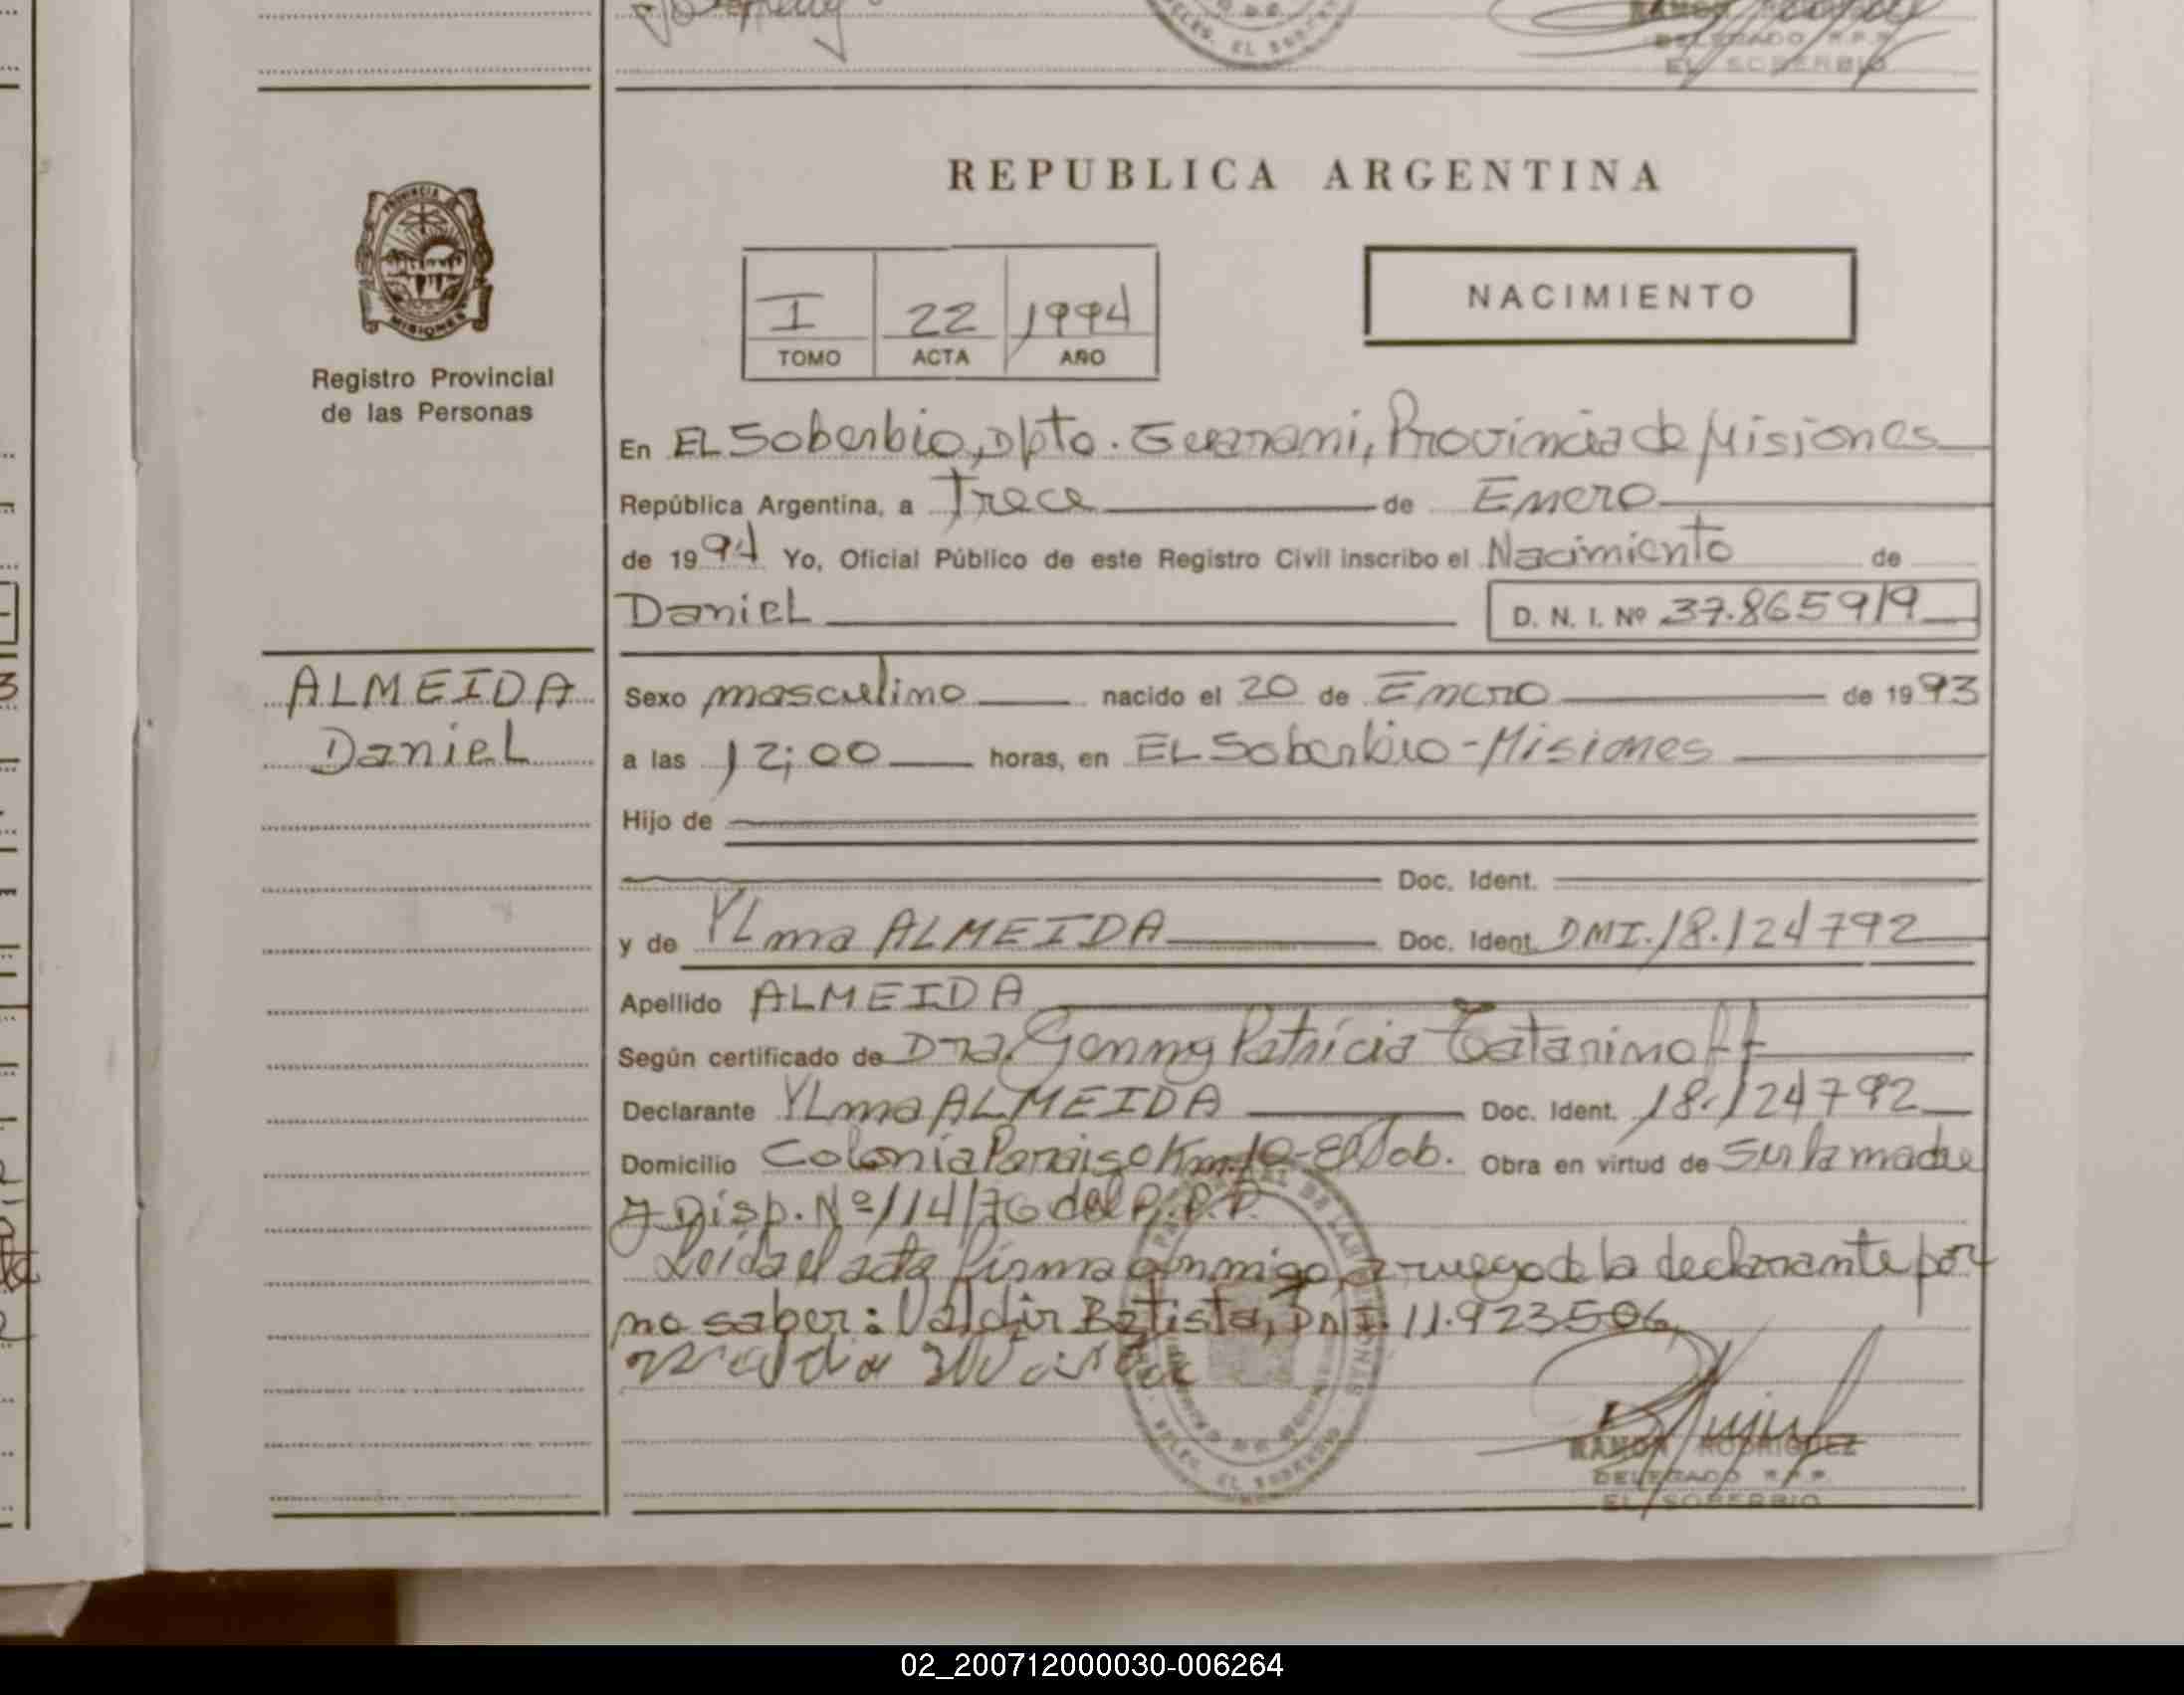 EL SOBERBIO
RAMON
DELEGADO R.P.P.
EL SOBERBIO
REPUBLICA ARGENTINA
PROVINCIA DE
MISIONES
Registro Provincial
de las Personas
I 22 1994
TOMO ACTA AÑO
NACIMIENTO
En EL Soberbio, Dpto. Guarani, Provincia de Misiones
República Argentina, a Trece de Enero
de 1994 Yo, Oficial Público de este Registro Civil inscribo el Nacimiento de
Daniel D. N. I. Nº 37.865919
ALMEIDA
Daniel
Sexo masculino nacido el 20 de Enero de 1993
a las 12;00 horas, en EL Soberbio - Misiones
Hijo de
Doc. Ident.
y de YLma ALMEIDA Doc. Ident. DNI. 18.124792
Apellido ALMEIDA
Según certificado de Dra. Genny Patricia Tatarinoff
Declarante YLma ALMEIDA Doc. Ident. 18.124792
Domicilio Colonia Paraiso Km.10-El Sob. Obra en virtud de Ser la madre
y Disp. Nº 114/76 del R.P.P.
Leida el acta firma conmigo, a ruego de la declarante por
no saber: Valdir Batista, DNI. 11.923506
RAMON RODRIGUEZ
DELEGADO R.P.P.
EL SOBERBIO
02_200712000030-006264